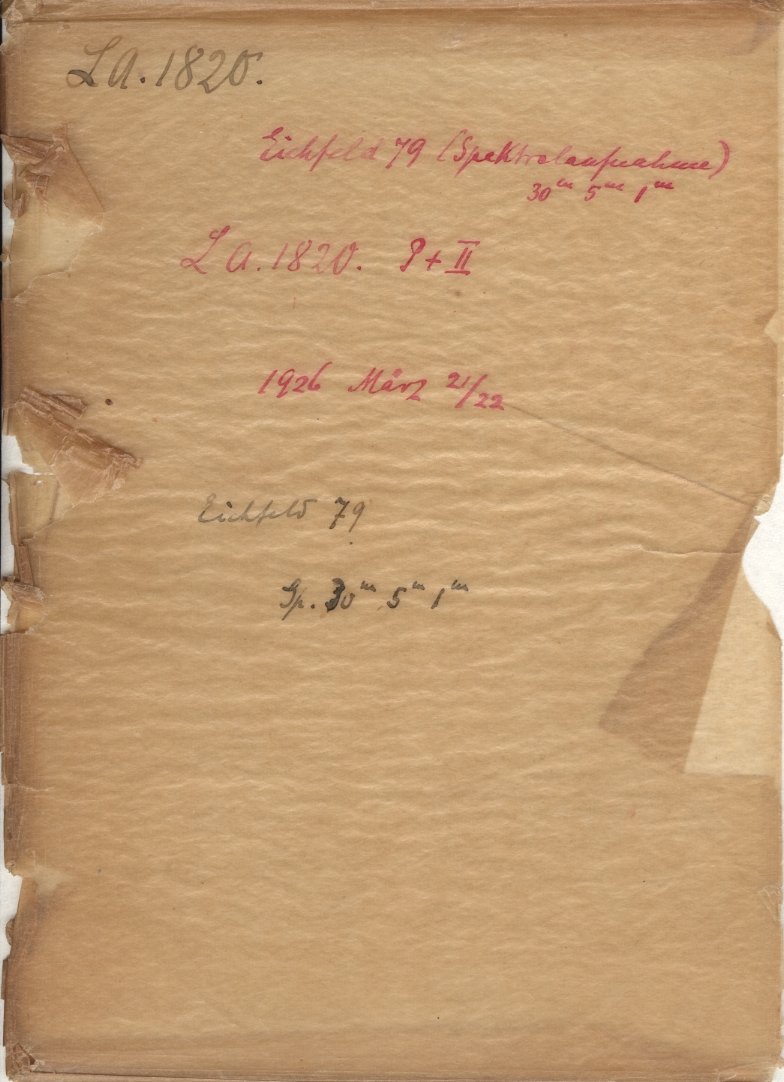 L A. 1820.
Eichfeld 79 (Spektralaufnahme)
30ᵐ 5ᵐ 1ᵐ
L A. 1820. I + II
1926 März 21/22
Eichfeld 79
Sp. 30ᵐ 5ᵐ 1ᵐ